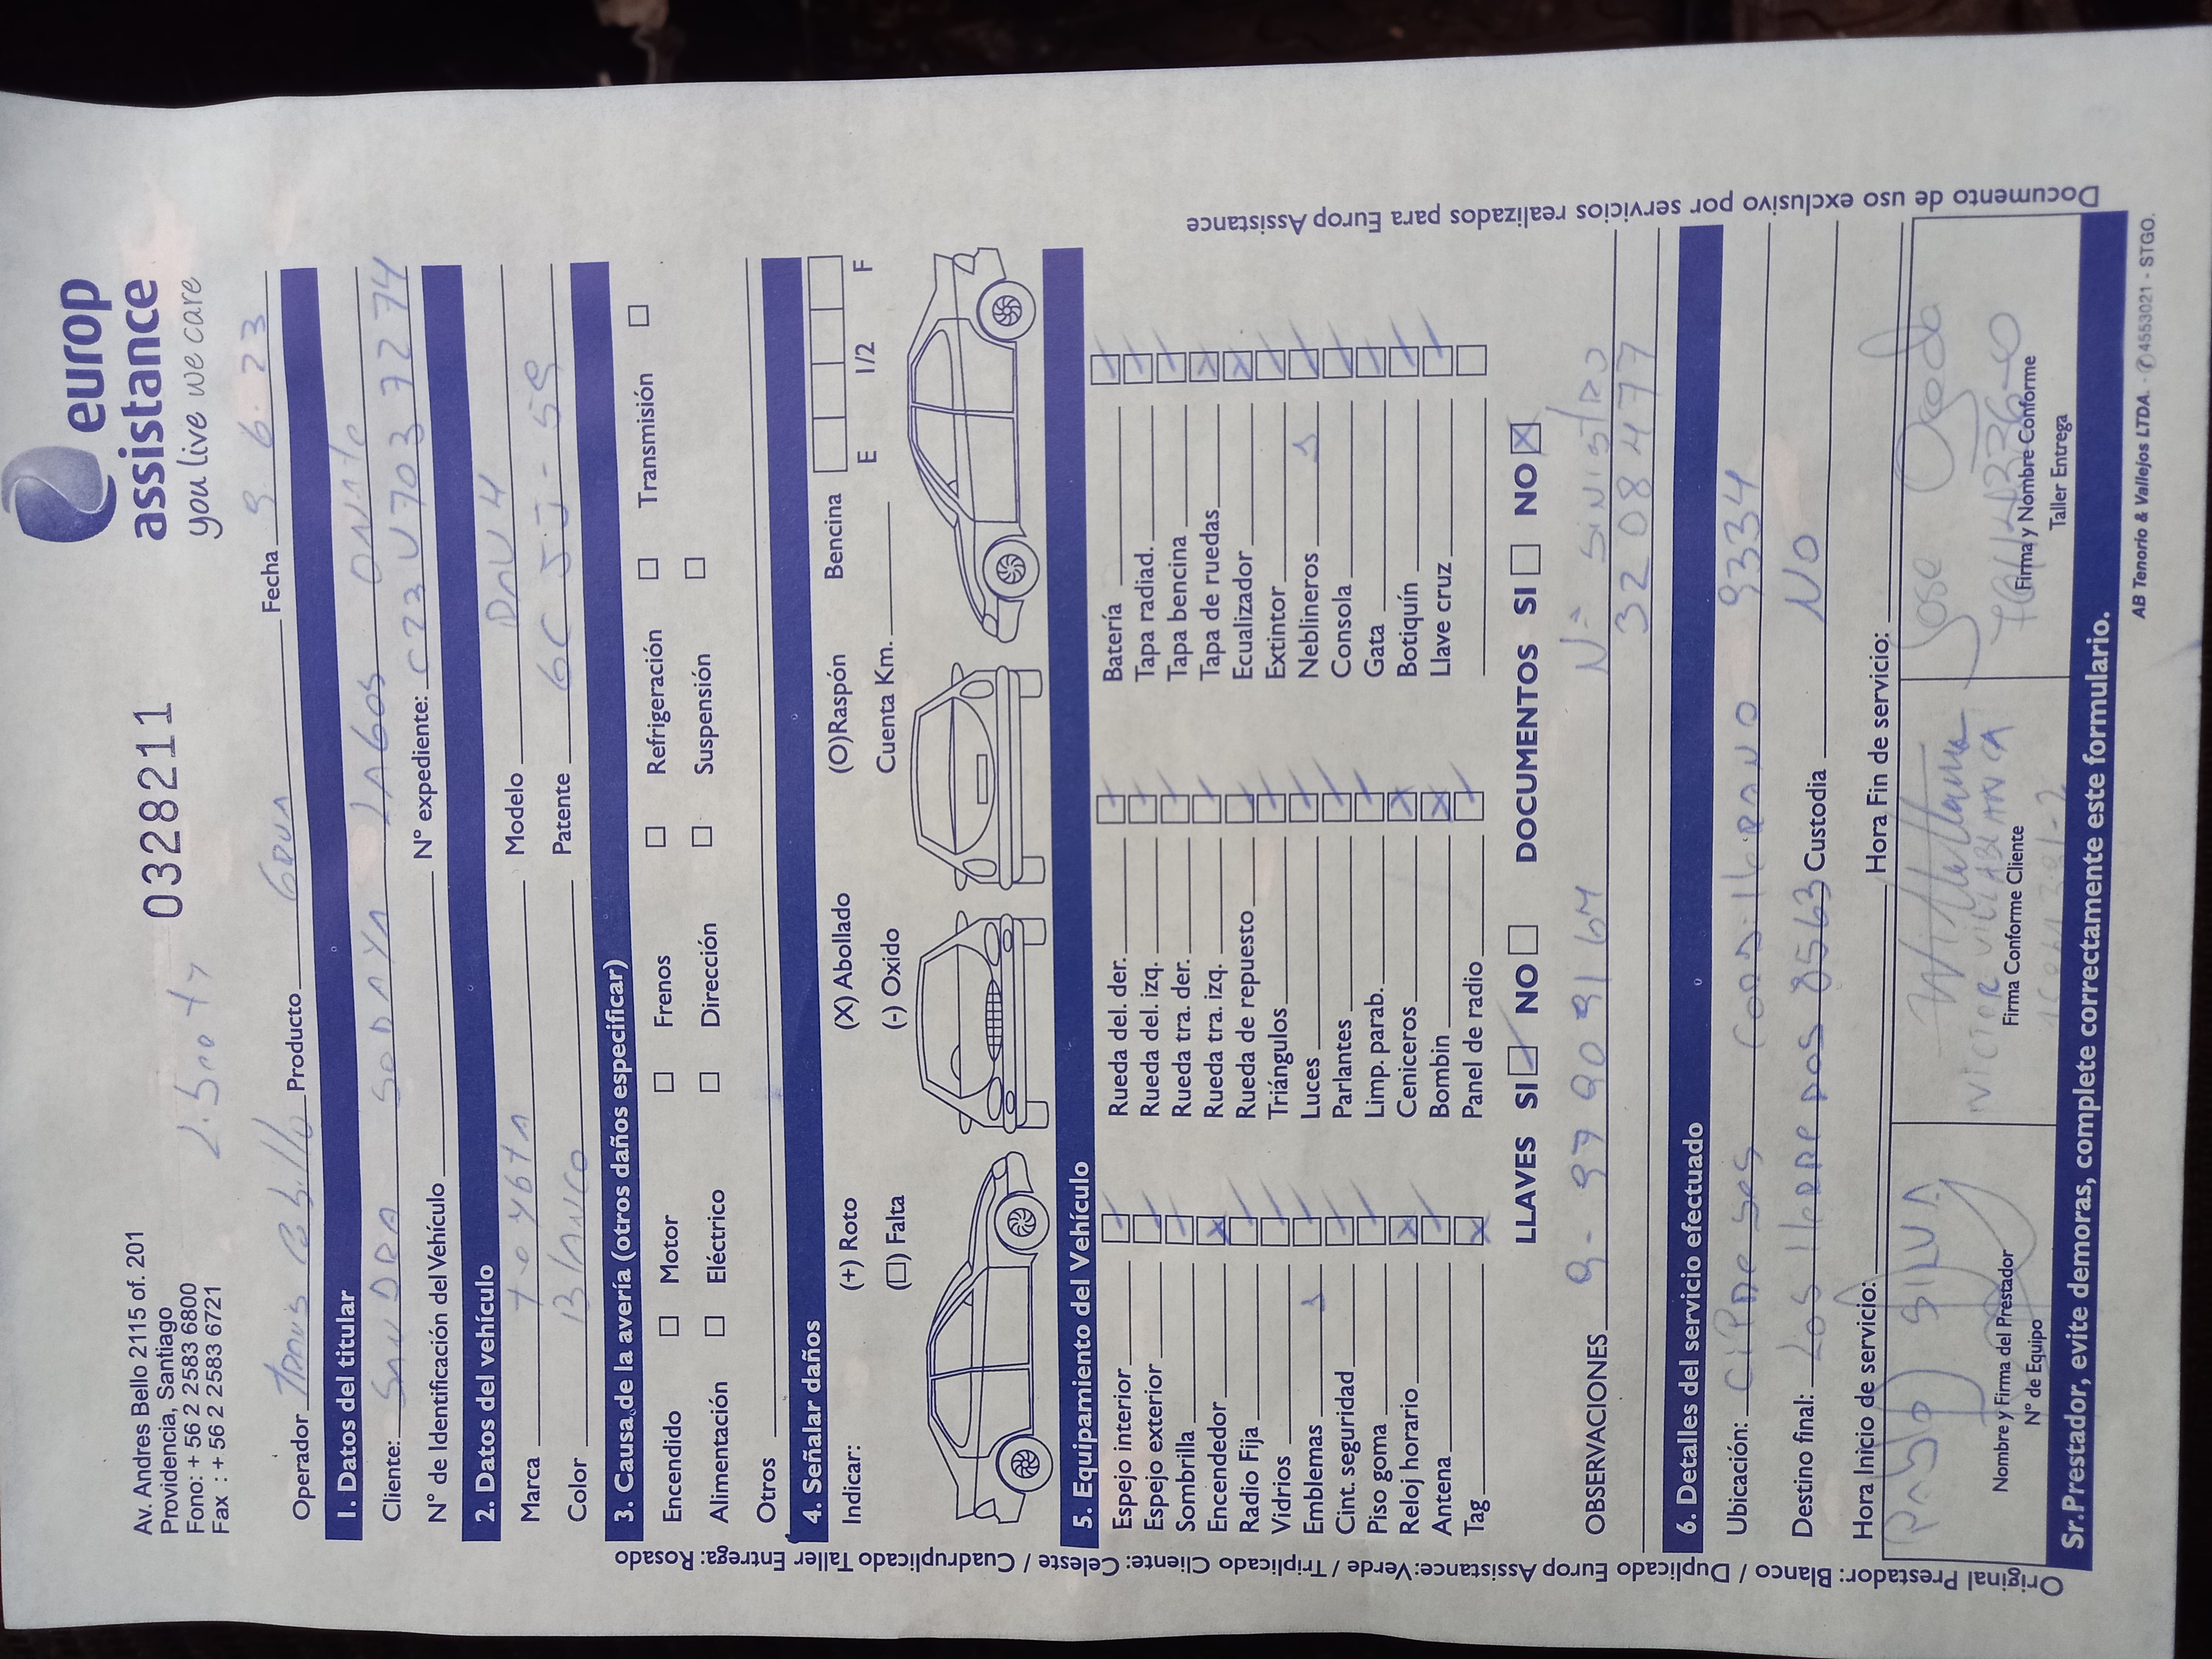 europ
assistance
you live we care
Av. Andres Bello 2115 of. 201
Providencia, Santiago
Fono: + 56 2 2583 6800
Fax : + 56 2 2583 6721
0328211
Operador Producto Grua Fecha 9. 6. 23
1. Datos del titular
Cliente: SANDRA LAGOS
N° de Identificación del Vehículo N° expediente:
2. Datos del vehículo
Marca Toyota Modelo RAV 4
Color Blanco Patente
3. Causa de la avería (otros daños especificar)
Encendido Motor Frenos Refrigeración Transmisión
Alimentación Eléctrico Dirección Suspensión
Otros
4. Señalar daños
Indicar: (+) Roto (X) Abollado (O)Raspón Bencina E 1/2 F
(☐) Falta (-) Oxido Cuenta Km.
5. Equipamiento del Vehículo
Espejo interior Rueda del. der. Batería
Espejo exterior Rueda del. izq. Tapa radiad.
Sombrilla Rueda tra. der. Tapa bencina
Encendedor Rueda tra. izq. Tapa de ruedas
Radio Fija Rueda de repuesto Ecualizador
Vidrios Triángulos Extintor
Emblemas Luces Neblineros
Cint. seguridad Parlantes Consola
Piso goma Limp. parab. Gata
Reloj horario Ceniceros Botiquín
Antena Bombin Llave cruz
Tag Panel de radio
LLAVES SI NO DOCUMENTOS SI NO
OBSERVACIONES N° SiNiStRO
3208477
6. Detalles del servicio efectuado
Ubicación: 9334
Destino final: Los 8563 Custodia NO
Hora Inicio de servicio: Hora Fin de servicio:
Pablo SILVA
VICTOR VILLABLANCA
Jose Ojeda
Nombre y Firma del Prestador
N° de Equipo
Firma Conforme Cliente
Firma y Nombre Conforme
Taller Entrega
Sr.Prestador, evite demoras, complete correctamente este formulario.
AB Tenorio & Vallejos LTDA. - ✆4553021 - STGO.
Original Prestador: Blanco / Duplicado Europ Assistance:Verde / Triplicado Cliente: Celeste / Cuadruplicado Taller Entrega: Rosado
Documento de uso exclusivo por servicios realizados para Europ Assistance